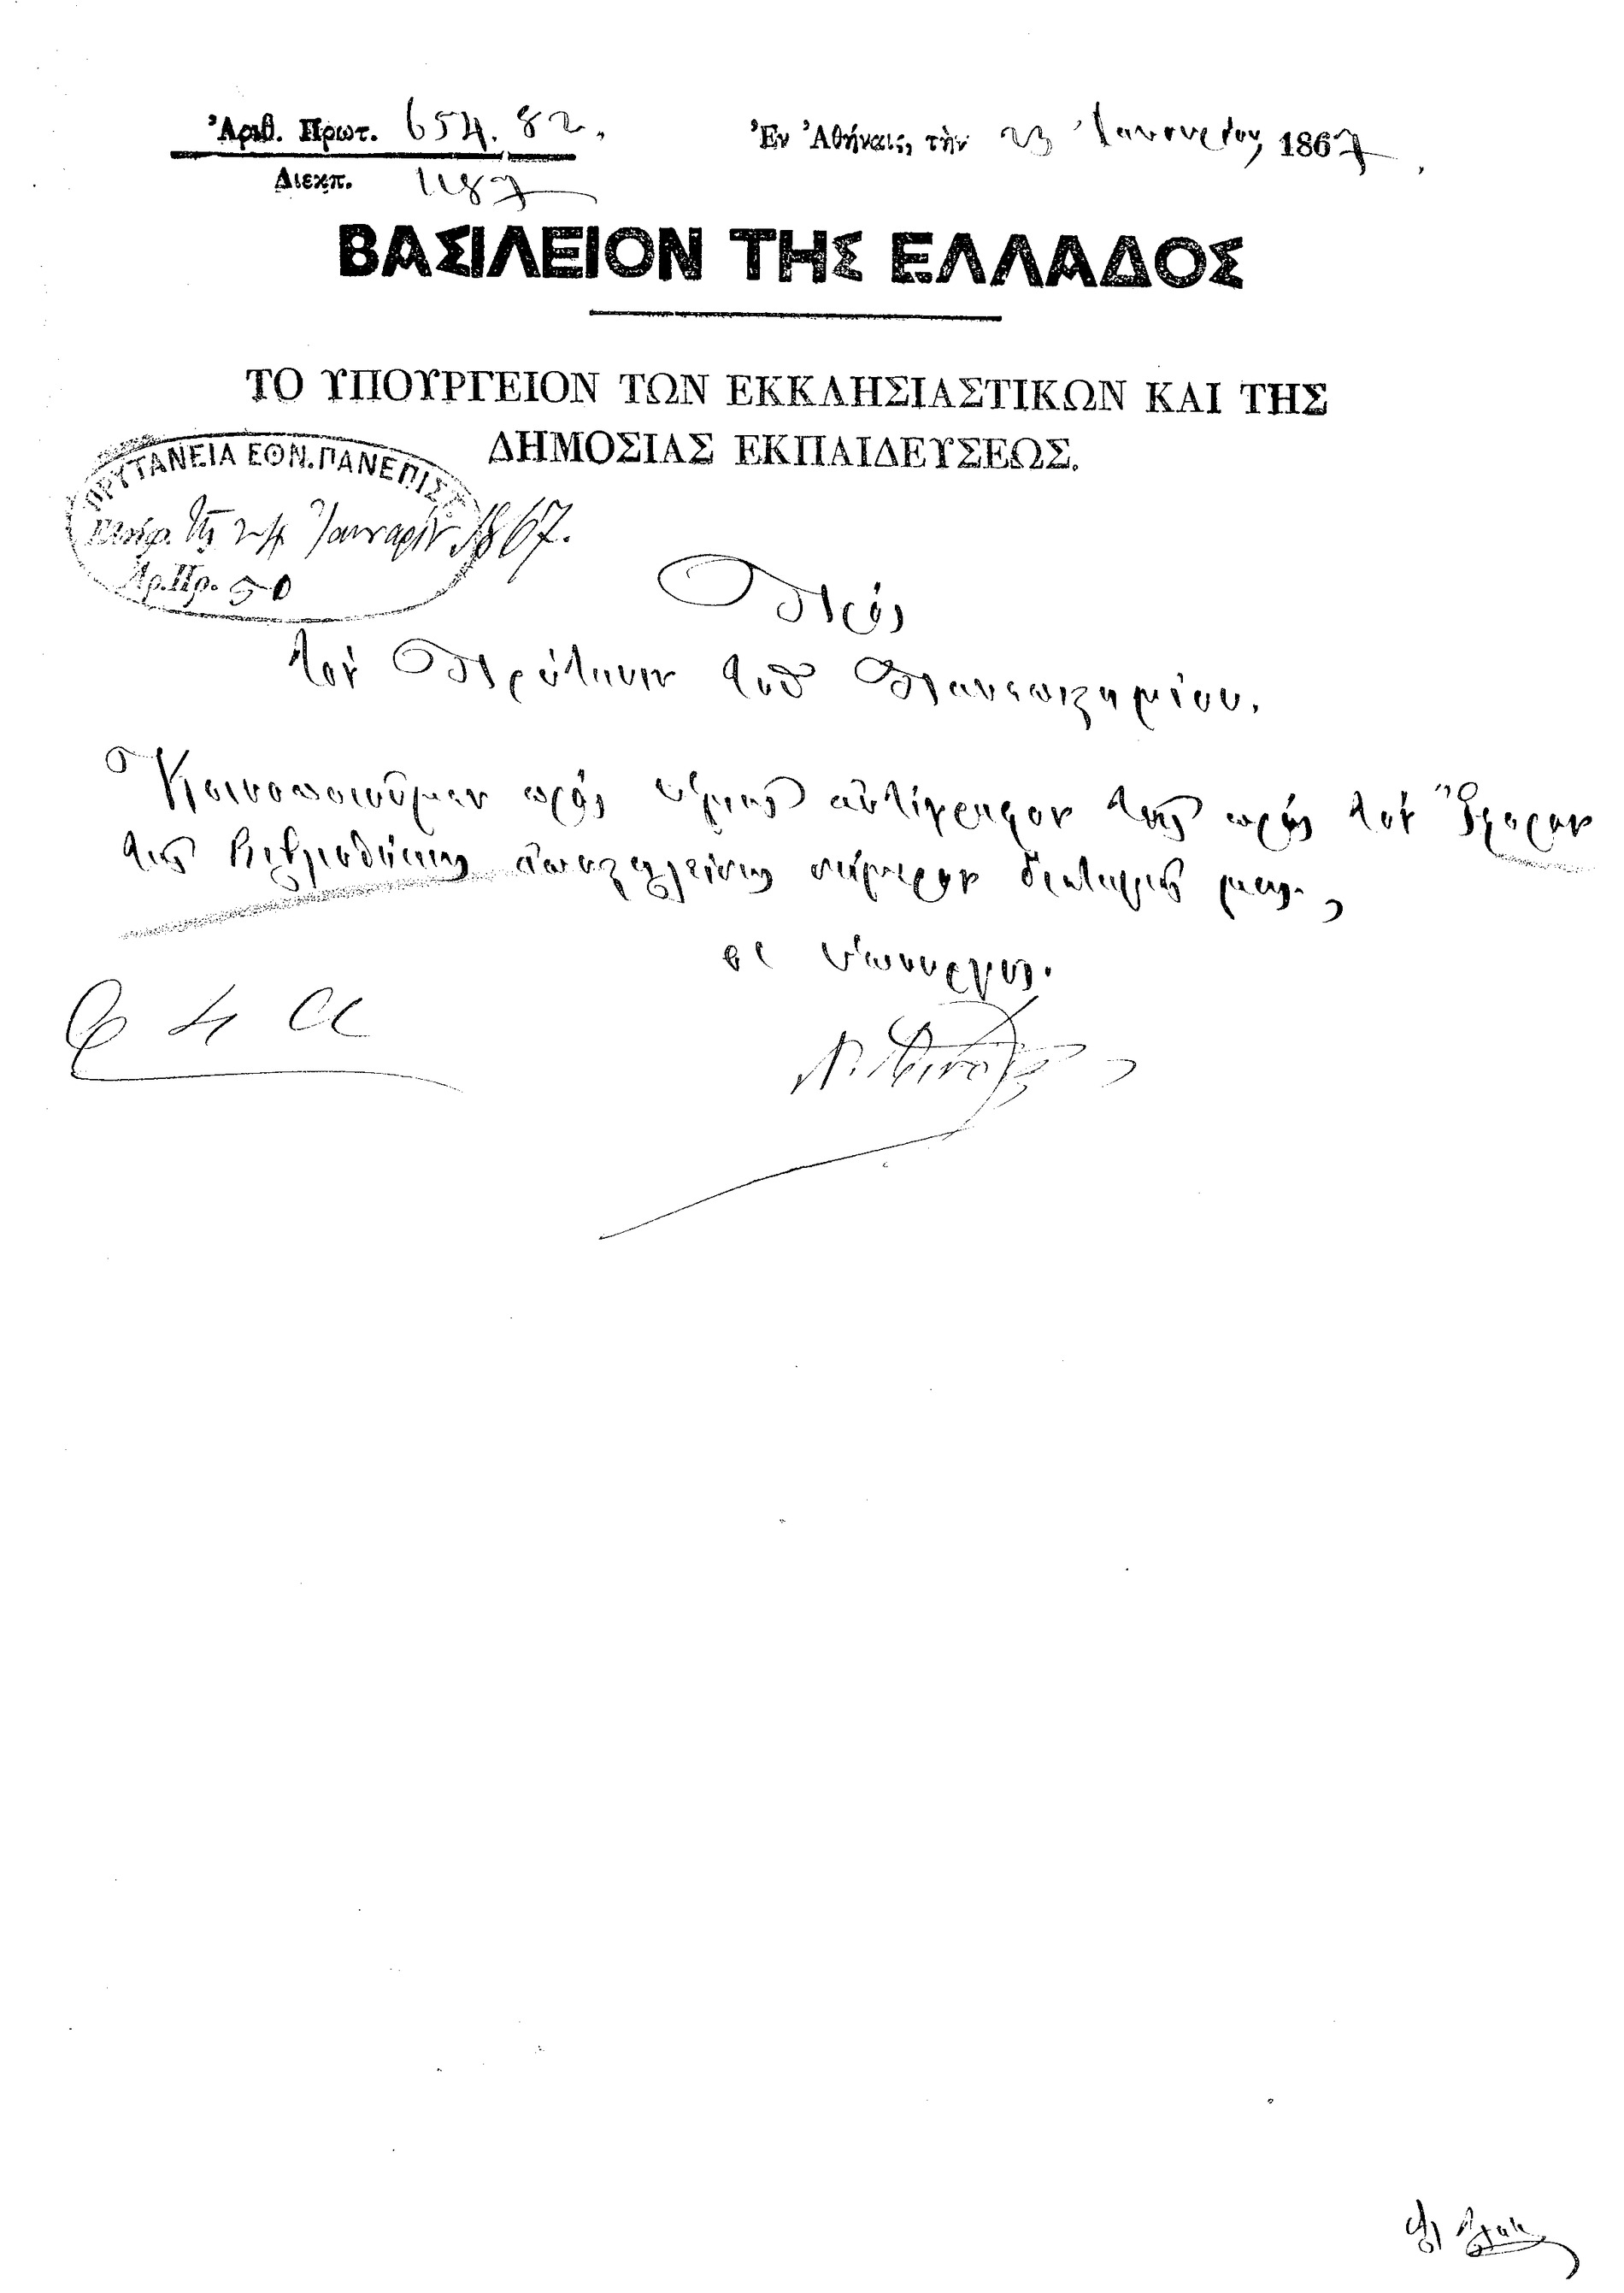 Ἀριθ. Πρωτ. 654.82.
Διεκπ. 1187
Ἐν Ἀθήναις, τὴν 23 Ἰανουαρίου 1867
ΒΑΣΙΛΕΙΟΝ ΤΗΣ ΕΛΛΑΔΟΣ
ΤΟ ΥΠΟΥΡΓΕΙΟΝ ΤΩΝ ΕΚΚΛΗΣΙΑΣΤΙΚΩΝ ΚΑΙ ΤΗΣ
ΔΗΜΟΣΙΑΣ ΕΚΠΑΙΔΕΥΣΕΩΣ.
ΠΡΥΤΑΝΕΙΑ ΕΘΝ. ΠΑΝΕΠΙΣΤ.
τῇ 24 Ἰανουαρίου 1867.
Ἀρ. Πρ. 50
Πρὸς
τὸν Πρύτανιν τοῦ Πανεπιστημίου.
Κοινοποιοῦμεν πρὸς ὑμᾶς ἀντίγραφον τῆς πρὸς τὸν Ἔφορον
τῆς Βιβλιοθήκης ἀποσταλείσης σήμερον διαταγῆς μας.
Ὁ Ὑπουργός.